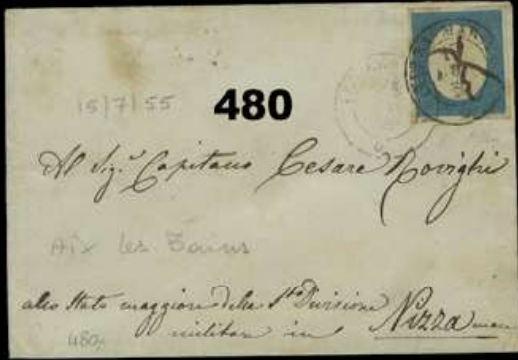 15/7/55 480
Al Sig.r Capitano Cesare Rovighi
Aix les Bains
allo Stato maggiore della Divisione
militare in Nizza mare
480